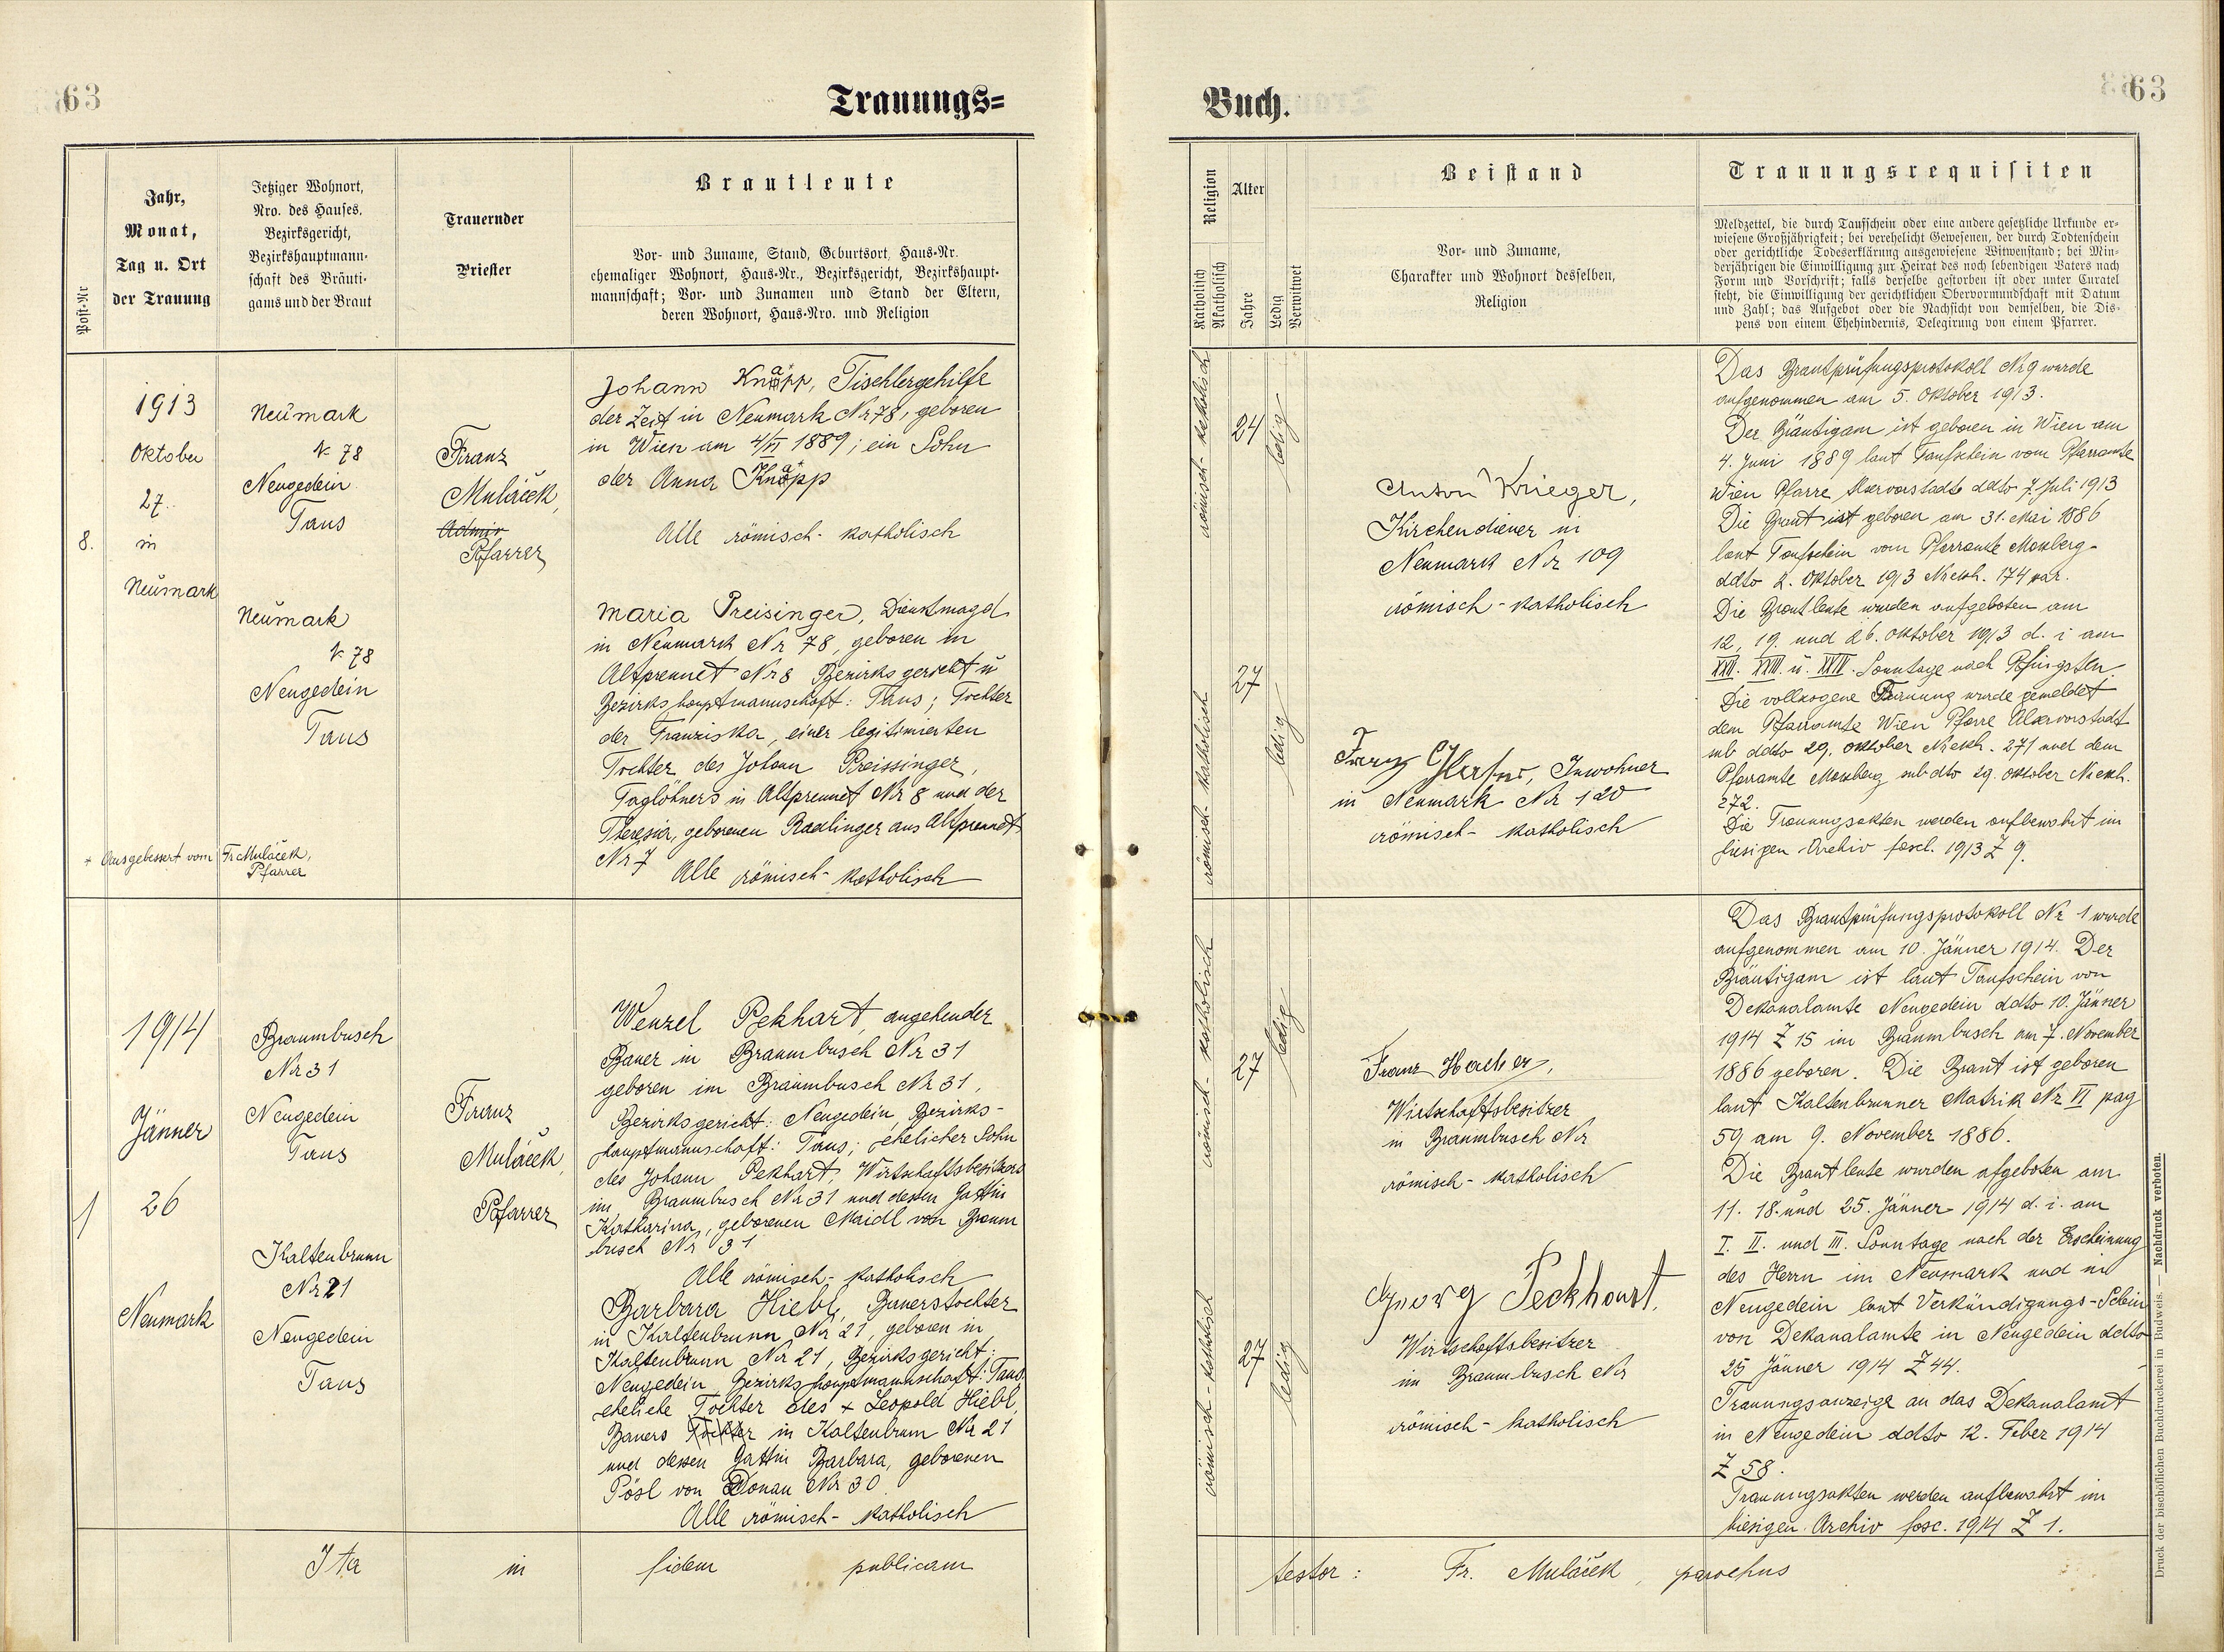 63
Trauungs=
Post-Nr
Jahr,
Monat,
Tag u. Ort
der Trauung
Jetziger Wohnort,
Nro. des Hauses,
Bezirksgericht,
Bezirkshauptmann-
schaft des Bräuti-
gams und der Braut
Trauernder
Priester
Brautleute
Vor- und Zuname, Stand, Geburtsort, Haus-Nr.
ehemaliger Wohnort, Haus-Nr., Bezirksgericht, Bezirkshaupt-
mannschaft; Vor- und Zunamen und Stand der Eltern,
deren Wohnort, Haus-Nro. und Religion
8.
1913
Oktober
27.
in
Neumark
Neumark
N 78
Neugedein
Taus
Neumark
N 78
Neugedein
Taus
+ Ausgebessert vom Fr Muláček,
Pfarrer
Franz
Muláček,
Admin
Pfarrer
Johann Knäpp, Tischlergehilfe
der Zeit in Neumark Nr 78, geboren
in Wien am 4/VI 1889; ein Sohn
der Anna Knäpp
Alle römisch-katholisch
Maria Preisinger, Dienstmagd
in Neumark Nr 78, geboren in
Altprennet Nr 8 Bezirksgericht u
Bezirkshauptmannschaft: Taus; Tochter
der Franziska, einer legitimierten
Tochter des Johann Preissinger,
Taglöhners in Altprennet Nr 8 und der
Theresia, geborenen Radlinger aus Altprennet
Nr 7
Alle römisch-katholisch
1
1914
Jänner
26
Neumark
Braumbusch
Nr 31
Neugedein
Taus
Kaltenbrunn
Nr 21
Neugedein
Taus
Franz
Muláček,
Pfarrer
Wenzel Pekhart, angehender
Bauer in Braumbusch Nr 31
geboren im Braumbusch Nr 31,
Bezirksgericht: Neugedein, Bezirks-
hauptmannschaft: Taus; ehelicher Sohn
des Johann Pekhart, Wirtschaftsbesitzers
im Braumbusch Nr 31 und dessen Gattin
Katharina, geborenen Maidl von Braum
busch Nr 31
Alle römisch-katholisch
Barbara Hiebl, Bauerstochter
in Kaltenbrunn Nr 21, geboren in
Kaltenbrunn Nr 21, Bezirksgericht:
Neugedein, Bezirkshauptmannschaft: Taus
eheliche Tochter des + Leopold Hiebl,
Bauers Tochter in Kaltenbrunn Nr 21
und dessen Gattin Barbara, geborenen
Pösl von Donau Nr 30.
Alle römisch-katholisch
Ita in fidem publicam
Buch.
63
Religion
Katholisch
Akatholisch
Alter
Jahre
Ledig
Verwitwet
Beistand
Vor- und Zuname,
Charakter und Wohnort desselben,
Religion
Trauungsrequisiten
Meldzettel, die durch Taufschein oder eine andere gesetzliche Urkunde er-
wiesene Großjährigkeit; bei verehelicht Gewesenen, der durch Todtenschein
oder gerichtliche Todeserklärung ausgewiesene Witwenstand; bei Min-
derjährigen die Einwilligung zur Heirat des noch lebendigen Vaters nach
Form und Vorschrift; falls derselbe gestorben ist oder unter Curatel
steht, die Einwilligung der gerichtlichen Obervormundschaft mit Datum
und Zahl; das Aufgebot oder die Nachsicht von demselben, die Dis-
pens von einem Ehehindernis, Delegirung von einem Pfarrer.
römisch-katholisch
24
ledig
römisch-katholisch
27
ledig
Anton Krieger,
Kirchendiener in
Neumark Nr 109
römisch-katholisch
Franz Inwohner
in Neumark Nr 120
römisch-katholisch
Das Brautprüfungsprotokoll Nr 9 wurde
aufgenommen am 5. Oktober 1913.
Der Bräutigam ist geboren in Wien am
4. Juni 1889 laut Taufschein vom Pfarramte
Wien Pfarre Alservorstadt ddto 7. Juli 1913
Die Braut ist geboren am 31. Mai 1886
laut Taufschein vom Pfarramte Moxberg
ddto 2. Oktober 1913 Nrexh. 174 par.
Die Brautleute wurden aufgeboten am
12, 19. und 26. Oktober 1913 d. i am
XXII. XXIII u. XXIV. Sonntage nach Pfingsten
Die vollzogene Trauung wurde gemeldet
dem Pfarramte Wien Pfarre Alservorstadt
sub ddto 29. Oktober Nrexh. 271 und dem
Pfarramte Moxberg sub dto 29. Oktober Nrexh.
272.
Die Trauungsakten werden aufbewahrt im
hiesigen Archiv fascl. 1913 Z 9.
römisch-katholisch
27
ledig
römisch-katholisch
27
ledig
Franz
Wirtschaftsbesitzer
in Braumbusch Nr
römisch-katholisch
Georg Peckhart,
Wirtschaftsbesitzer
im Braumbusch Nr
römisch-katholisch
Das Brautprüfungsprotokoll Nr 1 wurde
aufgenommen am 10. Jänner 1914. Der
Bräutigam ist laut Taufschein von
Dekanalamte Neugedein ddto 10. Jänner
1914 Z 15 im Braumbusch am 7. November
1886 geboren. Die Braut ist geboren
laut Kaltenbrunner Matrik Nr VI pag
59 am 9. November 1886.
Die Brautleute wurden afgeboten am
11. 18. und 25. Jänner 1914 d. i. am
I. II. und III. Sonntage nach der Erscheinung
des Herrn im Neumark und in
Neugedein laut Verkündigungs-Schein
von Dekanalamte in Neugedein ddto
25 Jänner 1914 Z 44.
Trauungsanzeige an das Dekanalamt
in Neugedein ddto 12. Feber 1914
Z 58.
Trauungsakten werden aufbewahrt im
hiesigen Archiv fasc. 1914 Z 1.
testor: Fr. Muláček, parochus
Druck der bischöflichen Buchdruckerei in Budweis. — Nachdruck verboten.